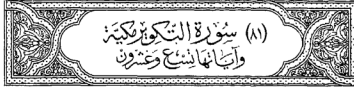 (٨١) سُورَةُ التَّكْوِيرِ مَكِيَّة
وَآيَاتُهَا تِسْعٌ وَعِشْرُونَ